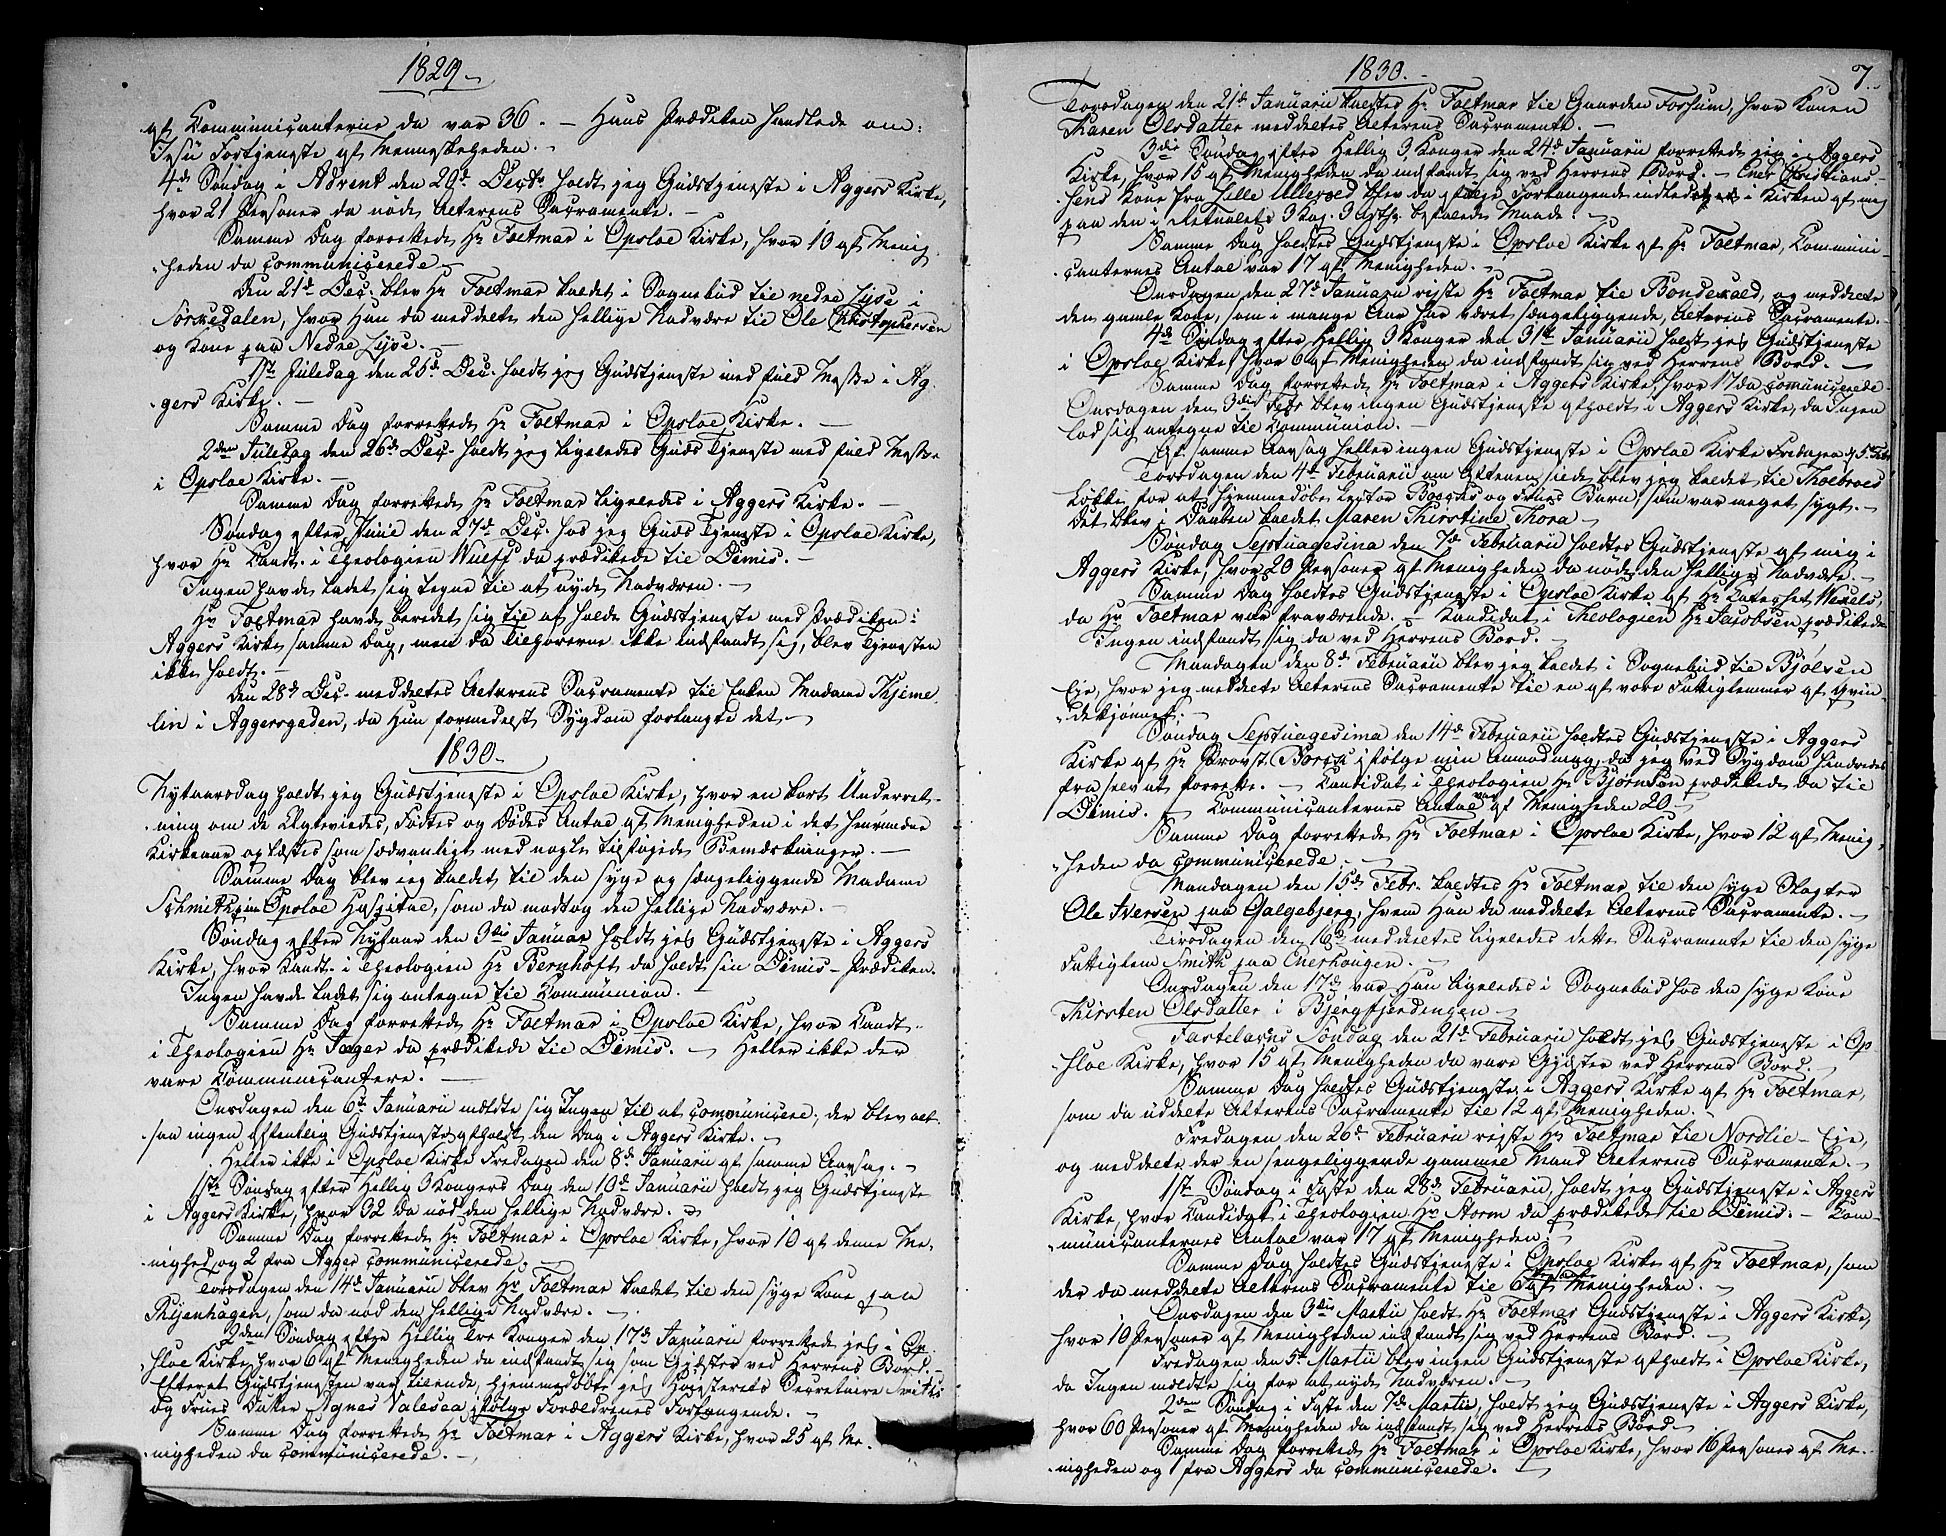 1829.
af Communicanterne da var 36. — Hans Prædiken handlede om:
Jesu Fortjeneste af Menneskeheden. —
4de Søndag i Advent den 20de Decbr holdt jeg Gudstjeneste i Aggers Kirke,
hvor 21 Personer da nøde Alterens Sacramente. —
Samme Dag forrettede Hr Foltmar i Opsloe Kirke, hvor 10 af Menig-
heden da communicerede —
Den 21de Dec. blev Hr Foltmar kaldet i Sognebud til nedre Lyse i
Sørkedalen, hvor Han da meddelte den hellige Nadvere til Ole Christophersen
og Kone paa Nedre Lyse. —
1ste Juledag den 25de Dec. holdt jeg Gudstjeneste med fuld Messe i Ag-
gers Kirke. —
Samme Dag forrettede Hr Foltmar i Opsloe Kirke. —
2den Juledag den 26de Dec. holdt jeg ligeledes Guds Tjeneste med fuld Messe
i Opsloe Kirke. —
Samme Dag forrettede Hr Foltmar ligeledes i Aggers Kirke. —
Søndag efter Juul den 27de Dec. hos jeg Guds Tjeneste i Opsloe Kirke,
hvor Hr Candt. i Theologien Wulff da prædikede til Dimis. —
Ingen havde ladet sig tegne til at nyde Nadveren. —
Hr Foltmar havde beredet sig til at holde Gudstjeneste med Prædiken i
Aggers Kirke samme Dag, men da Tilhørerne ikke indfandt sig, blev Tjenesten
ikke holdt. —
Den 28de Dec. meddeltes Alterens Sacramente til Enken Madame
lin i Aggersgaden, da Hun formedelst Sygdom forlangte det. —
1830.
Nytaarsdag holdt jeg Gudstjeneste i Opsloe Kirke, hvor en kort Underret-
ning om de Ægteviedes, Fødtes og Dødes Antal af Menigheden i det henrundne
Kirkeaar oplæstes som sædvanligt med nogle tilføjede Bemærkninger. —
Samme Dag blev jeg kaldet til den syge og sængeliggende Madame
Schmith paa Opsloe Hospital, som da modtog den hellige Nadvere. —
Søndag efter Nytaar den 3die Januar holdt jeg Gudstjeneste i Aggers
Kirke, hvor Kandt. i Theologien Hr Bernhoft da holdt sin Dimis-Prædiken.
Ingen havde ladet sig antegne til Communion. —
Samme Dag forrettede Hr Foltmar i Opsloe Kirke, hvor Candt.
i Theologien Hr Jæger da prædikede til Dimis. — Heller ikke der
vare Communicantere. —
Onsdagen den 6te Januarii meldte sig Ingen til at communicere; der blev alt-
saa ingen offentlig Gudstjeneste afholdt den Dag i Aggers Kirke. —
Heller ikke i Opsloe Kirke Fredagen den 8de Januarii af samme Aarsag. —
1ste Søndag efter Hellig 3 Kongers Dag den 10de Januarii holdt jeg Gudstjeneste
i Aggers Kirke, hvor 32 da nød den hellige Nadvere. —
Samme Dag forrettede Hr Foltmar i Opsloe Kirke, hvor 10 af denne Me-
nighed og 2 fra Agger communicerede. —
Torsdagen den 14de Januarii blev Hr Foltmar kaldet til den syge Kone paa
Thyenhagen, som da nød den hellige Nadvere. —
2den Søndag efter Hellig Tre Konger den 17de Januarii forrettede jeg i Op-
sloe Kirke, hvor 6 af Menigheden da indfandt sig som Gjester ved Herrens Bord. —
Efterat Gudstjenesten var tilende, hjemmedøbte jeg Secretaire
og Frues Datter Agnes Valesca ifølge Forældrenes Forlangende. —
Samme Dag forrettede Hr Foltmar i Aggers Kirke, hvor 25 af Me-
nigheden da communicerede. —
1830. 7.
Torsdagen den 21de Januarii kaldtes Hr Foltmar til Gaarden Fossum, hvor Konen
Karen Olsdatter meddeltes Alterens Sacramente. —
3die Søndag efter Hellig 3 Konger den 24de Januarii forrettede jeg i Aggers
Kirke, hvor 15 af Menigheden da indfandt sig ved Herrens Bord. — Ener Christian-
sens Kone fra Lille Ullevold blev da ifølge Forlangende indledet i Kirken af mig
paa den i Ritualets 3 Kap. 3 Arth: befalede Maade. —
Samme Dag holdtes Gudstjeneste i Opsloe Kirke af Hr Foltmar, Communi-
canternes Antal var 17 af Menigheden. —
Onsdagen den 27de Januarii rejste Hr Foltmar til Bondekald, og meddelte
den gamle Kone, som i mange Aar har været sængeliggende, Alterens Sacramente. —
4de Søndag efter Hellig 3 Konger den 31te Januarii holdt jeg Gudstjeneste
i Opsloe Kirke, hvor 6 af Menigheden da indfandt sig ved Herrens Bord. —
Samme Dag forrettede Hr Foltmar i Aggers Kirke, hvor 17 da comunicerede
Onsdagen den 3die Febr blev ingen Gudstjeneste afholdt i Aggers Kirke, da Ingen
lod sig antegne til Communion. —
Af samme Aarsag heller ingen Gudstjeneste i Opsloe Kirke Fredagen d 5. Febr.
Torsdagen den 4de Februarii om Aftenen silde blev jeg kaldet til Tholbroes
Løkke for at hjemmedøbe Lector og Frues Barn, som var meget sygt. —
Det blev i Daaben kaldet Maren Kirstine Thora —
Søndag Septuagesima den 7de Februarii holdtes Gudstjeneste af mig i
Aggers Kirke, hvor 20 Personer af Menigheden da nøde den hellige Nadvere. —
Samme Dag holdtes Gudstjeneste i Opsloe Kirke af Hr Catechet Wexels,
da Hr Foltmar var fraværende. — Kandidat i Theologien Hr Jacobsen prædikede
Ingen indfandt sig da ved Herrens Bord. —
Mandagen den 8de Februarii blev jeg kaldet i Sognebud til Bjølsen
Eje, hvor jeg meddelte Alterens Sacramente til en af vore Fattiglemmer af Qvin-
dekjønnet. —
Søndag Septuagesima den 14de Februarii holdtes Gudstjeneste i Aggers
Kirke af Hr Provst ifølge min Anmodning, da jeg ved Sygdom hindredes
fra selv at forrette. — Candidat i Theologien Hr Bjørnson prædikede da til
Dimis. — Communicanternes Antal var af Menigheden 20 —
Samme Dag forrettede Hr Foltmar i Opsloe Kirke, hvor 12 af Menig-
heden da communicerede —
Mandagen den 15de Febr. kaldtes Hr Foltmar til den syge Slagter
Ole Iversen paa Galgebjerg, hvem Han da meddelte Alterens Sacramente. —
Tirsdagen den 16de meddeltes ligeledes dette Sacramente til den syge
Fattiglem Smith paa Enerhougen. —
Onsdagen den 17de var Han ligeledes i Sognebud hos den syge Kone
Kirsten Olsdatter i Bjergfjerdingen —
Fastelavns Søndag den 21de Februarii holdt jeg Gudstjeneste i Op-
sloe Kirke, hvor 15 af Menigheden da vare Gjester ved Herrens Bord. —
Samme Dag holdtes Gudstjeneste i Aggers Kirke af Hr Foltmar,
som da uddelte Alterens Sacramente til 12 af Menigheden.
Fredagen den 26de Februarii rejste Hr Foltmar til Nordlie-Eje,
og meddelte der en sengeliggende gammel Mand Alterens Sacramente. —
1ste Søndag i Faste den 28de Februarii, holdt jeg Gudstjeneste i Aggers
Kirke, hvor Candidat i Theologien Hr Storm da prædikede til Dimis. — Com-
municanternes Antal var 17 af Menigheden. —
Samme Dag holdtes Gudstjeneste i Opsloe Kirke af Hr Foltmar, som
der da meddelte Alterens Sacramente til 6 af Menigheden. —
Onsdagen den 3die Martii holdt Hr Foltmar Gudstjeneste i Aggers Kirke,
hvor 10 Personer af Menigheden indfandt sig ved Herrens Bord. —
Fredagen den 5te Martii blev ingen Gudstjeneste afholdt i Opsloe Kirke,
da Ingen meldte sig for at nyde Nadveren. —
2den Søndag i Faste den 7de Martii, holdt jeg Gudstjeneste i Aggers Kirke,
hvor 60 Personer af Menigheden da indfandt sig ved Herrens Bord —
Samme Dag forrettede Hr Foltmar i Opsloe Kirke, hvor 16 Personer af Me-
nigheden og 1 fra Aggers da communicerede. —